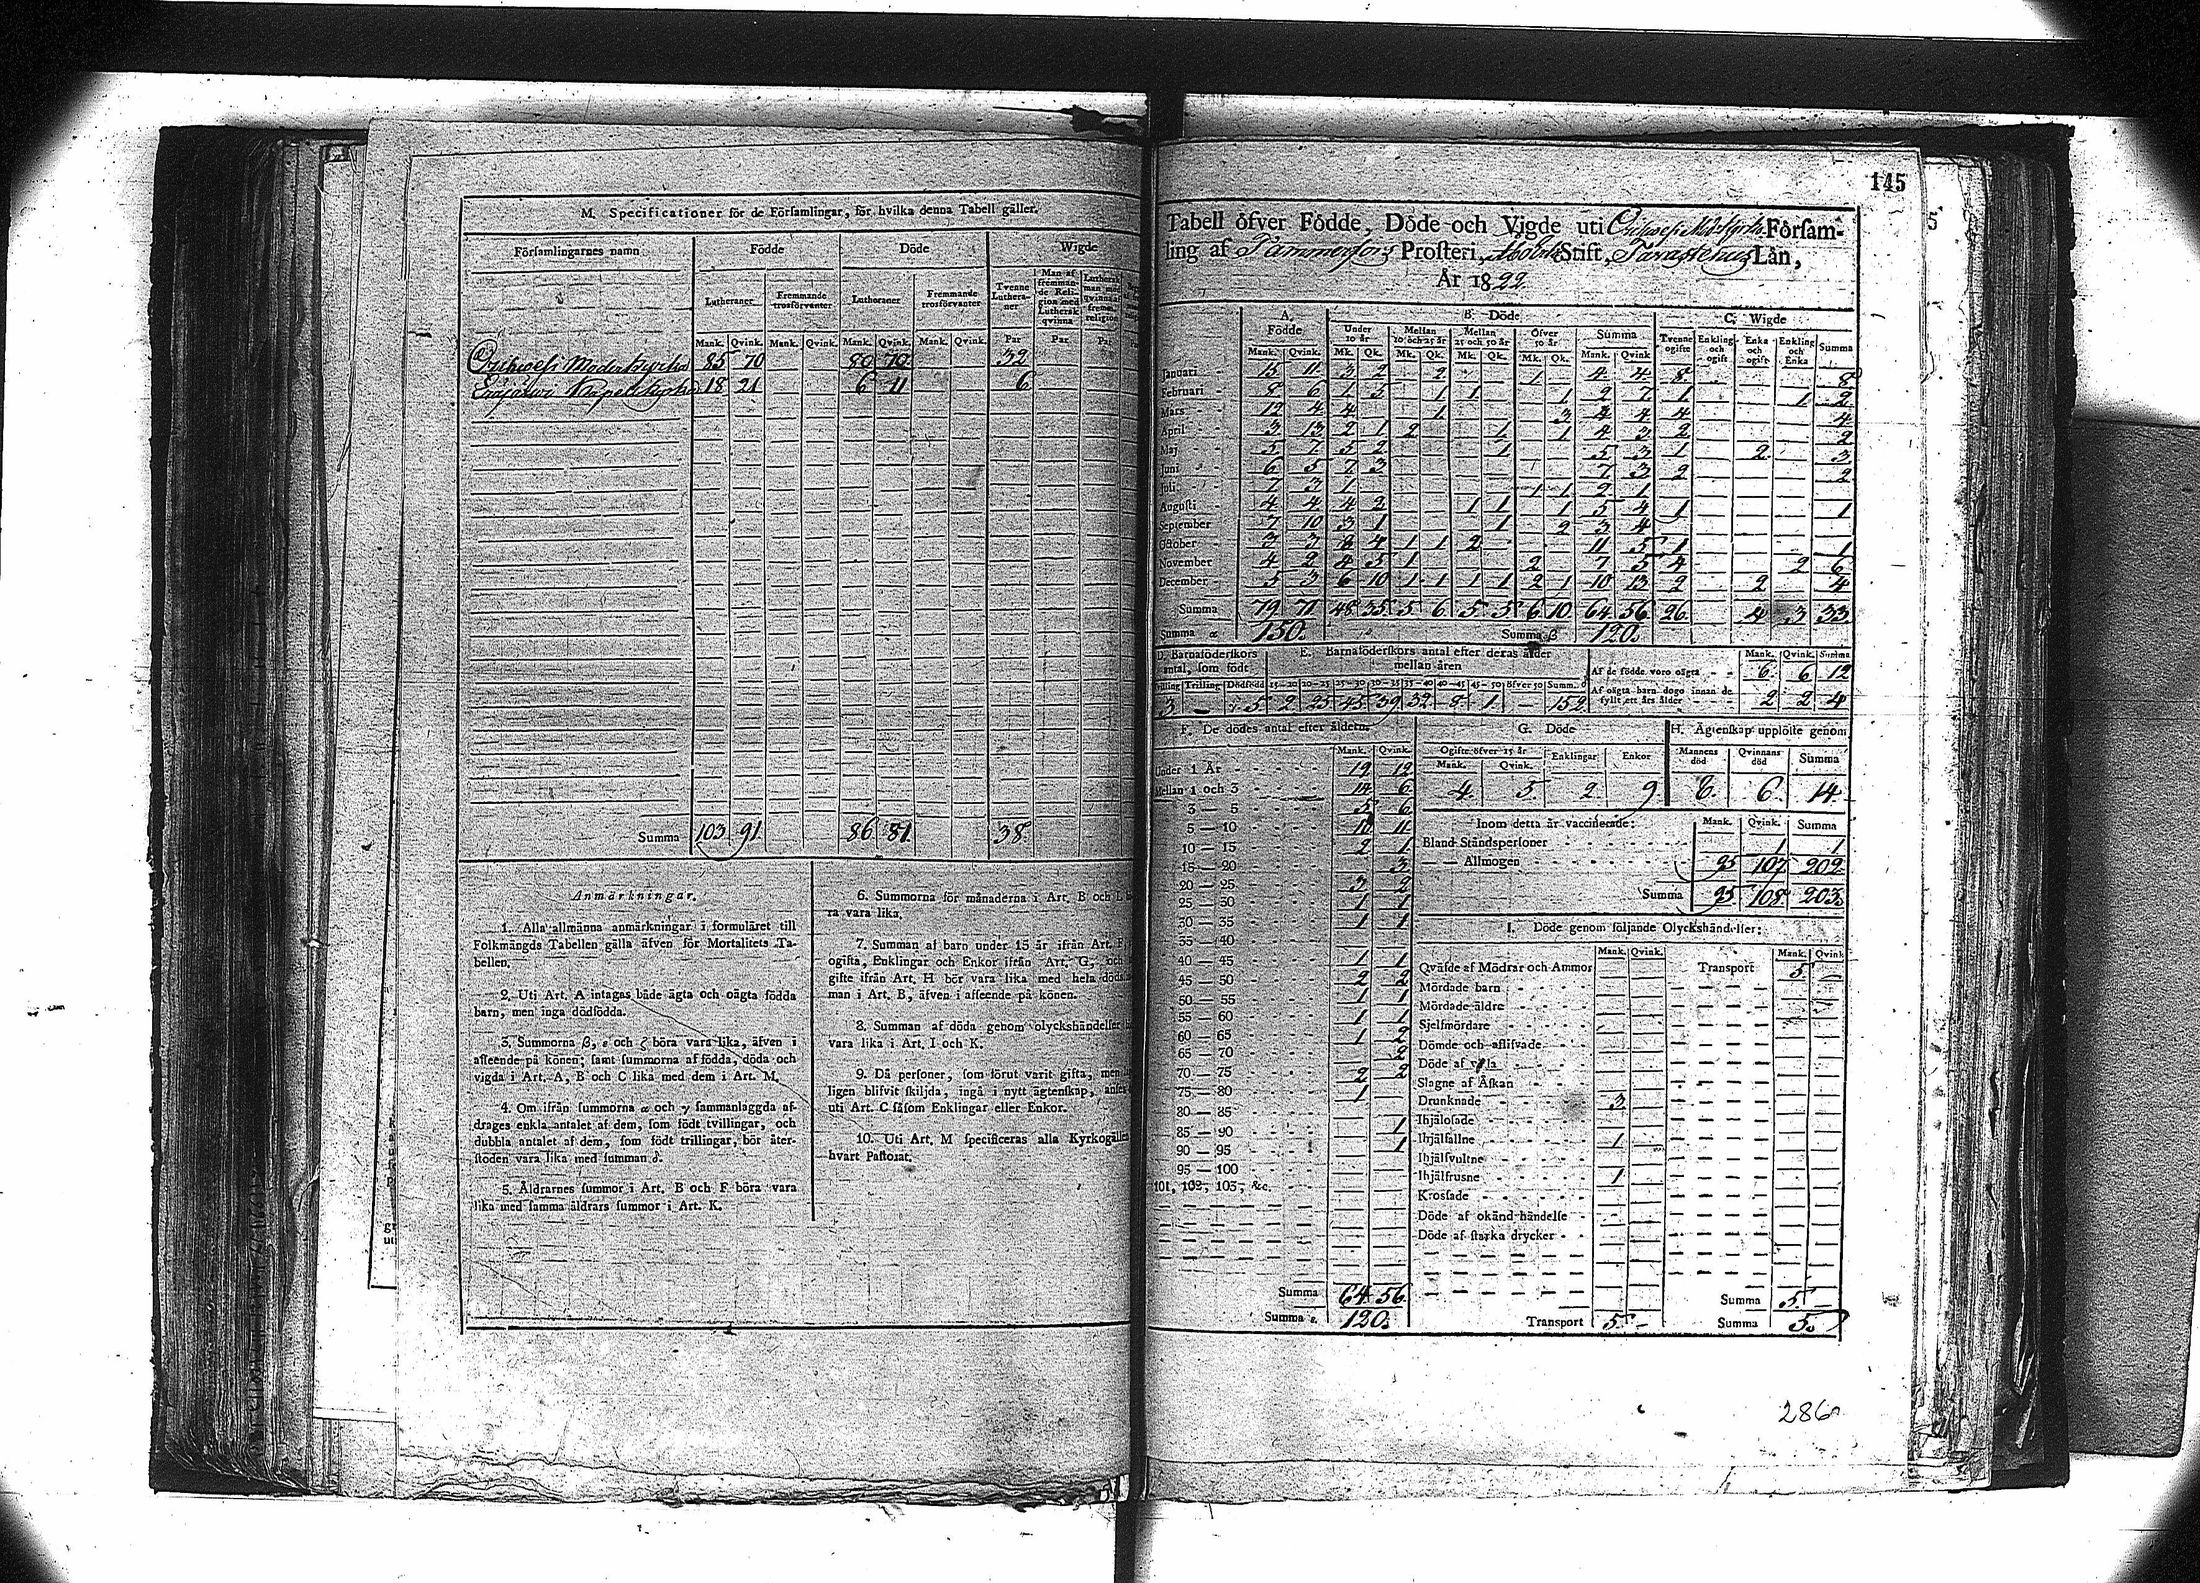 M. Specificationer för de Församlingar, för hvilka denna Tabell gäller.
Församlingarnes namn Födde Döde Wigde
Lutheraner Fremmande trosförvanter Lutheraner Fremmande trosförvanter Tvenne Lutheraner Man af fremmande Religion med Luthersk qvinna
Mank. Qvink. Mank. Qvink. Mank. Qvink. Mank. Qvink. Par Par Par
Orihvesi Moderkyrka 85 70 80 70 32
Eräjärvi Kapellkyrka 18 21 6 11 6
Summa 103 91 86 81 38
Anmärkningar.
1. Alla allmänna anmärkningar i formuläret till
Folkmängds Tabellen gälla äfven för Mortalitets Ta-
bellen.
2. Uti Art. A intagas både ägta och oägta födda
barn, men inga dödfödda.
3. Summorna β, ε och ζ böra vara lika, äfven i
affeende på könen; samt summorna af födda, döda och
vigda i Art. A, B och C lika med dem i Art. M.
4. Om ifrån summorna α och γ sammanlaggda af-
drages enkla antalet af dem, som födt tvillingar, och
dubbla antalet af dem, som födt trillingar, bör åter-
stoden vara lika med summan δ.
5. Åldrarnes summor i Art. B och F böra vara
lika med samma åldrars summor i Art. K.
6. Summorna för månaderna i Art. B och L
ra vara lika.
7. Summan af barn under 15 år ifrån Art. F
ogifta, Enklingar och Enkor ifrån Art. G, och
gifte ifrån Art. H bör vara lika med hela döda
man i Art. B, äfven i affeende på könen.
8. Summan af döda genom olyckshändelser
vara lika i Art. I och K.
9. Då personer, som förut varit gifta, men
ligen blifvit skiljda, ingå i nytt ägtenskap,
uti Art. C såsom Enklingar eller Enkor.
10. Uti Art. M specificeras alla Kyrkogällen
hvart Pastorat.
145
Tabell öfver Födde, Döde och Vigde uti Orihvesi Församling
af Tammerfors Prosteri, Åbo Stift, Tavastehus Län,
År 1822
A. Födde B. Döde C. Wigde
Under 10 år Mellan 10 och 25 år Mellan 25 och 50 år Öfver 50 år Summa Tvenne ogifte Enkling och ogift Enka och ogift Enkling och Enka Summa
Mank. Qvink. Mk. Qk. Mk. Qk. Mk. Qk. Mk. Qk. Mank. Qvink.
Januari 15 11 3 2 2 1 4 4 8 8
Februari 8 6 1 3 1 1 1 2 7 1 1 2
Mars 12 4 4 1 3 4 4 4 4
April 3 13 2 1 2 1 1 4 3 2 2
Maj 5 7 5 2 1 5 3 1 2 3
Juni 6 5 7 3 7 3 2 2
Juli 7 3 1 1 1 2 1
Augusti 4 4 4 2 1 1 1 5 4 1 1
September 7 10 3 1 1 2 3 4
October 3 3 8 4 1 1 2 11 5 1 1
November 4 2 4 5 1 2 7 5 4 2 6
December 5 3 6 10 1 1 1 1 2 1 10 13 2 2 4
Summa 79 71 48 35 5 6 5 5 6 10 64 56 26 4 3 33
Summa α 150. Summa β 120.
D. Barnaföderskors antal, som födt E. Barnaföderskors antal efter deras ålder mellan åren Mank. Qvink. Summa
Af de födde voro oägta 6 6 12
Tvilling Trilling Dödfödd 15-20 20-25 25-30 30-35 35-40 40-45 45-50 öfver 50 Summ.
Af oägta barn dogo innan de fyllt ett års ålder 2 2 4
3 - 5 2 25 45 39 32 8 1 - 152
F. De dödes antal efter åldern
Mank. Qvink.
Under 1 År 19 12
Mellan 1 och 3 14 6
3 — 5 5 6
5 — 10 10 11
10 — 15 2 1
15 — 20 3
20 — 25 3 2
25 — 30 1 1
30 — 35 1 1
35 — 40
40 — 45 1 1
45 — 50 2 2
50 — 55 1 1
55 — 60 1 1
60 — 65 1 2
65 — 70 2
70 — 75 2 2
75 — 80 1
80 — 85
85 — 90 1
90 — 95 1
95 — 100
101, 102, 103, &c.
Summa 64 56
Summa ε. 120.
G. Döde H. Ägtenskap upplöste genom
Ogifte öfver 15 år Enklingar Enkor Mannens död Qvinnans död Summa
Mank. Qvink.
4. 5. 2. 9. 8. 6. 14.
Inom detta år vaccinerade: Mank. Qvink. Summa
Bland Ståndspersoner 1 1
— — Allmogen 95 107 202
Summa 95 108 203
I. Döde genom följande Olyckshändelser:
Mank. Qvink. Mank. Qvink
Qväfde af Mödrar och Ammor Transport 5
Mördade barn
Mördade äldre
Sjelfmördare
Dömde och aflifvade
Döde af våda
Slagne af Åskan
Drunknade 3
Ihjälosade
Ihjälfallne 1
Ihjälsvultne
Ihjälfrusne 1
Krossade
Döde af okänd händelse
Döde af starka drycker
Summa 5. —
Transport 5. - Summa 5.
286